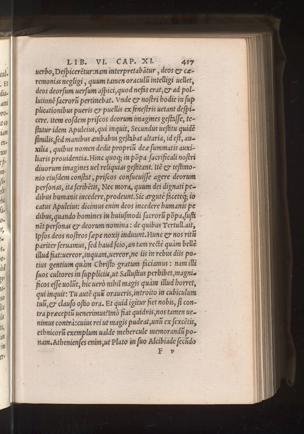 LIB. VI. CAP. XI. 417
uerbo, Despicerētur: nam interpretabātur, deos & cæ-
remonias negligi, quum tamen oraculū intelligi uellet,
deos deorsum uersum aspici, quod nefas erat, & ad pol-
lutionē sacrorū pertinebat. Vnde & nostri hodie in sup
plicationibus pueris & puellis ex fenestris uetant despi-
cere. item eosdem priscos deorum imagines gestasse, te-
statur idem Apuleius, qui inquit, Secundus uestitu quidē
similis, sed manibus ambabus gestabat altaria, id est, au-
xilia, quibus nomen dedit propriū deæ summatis auxi-
liaris prouidentia. Hinc quoq; in pōpa sacrificali nostri
duorum imagines uel reliquias gestant. Itē & testimo-
nio eiusdem constat, priscos consueuisse agere deorum
personas, ita scribētis, Nec mora, quum dei dignati pe-
dibus humanis incedere, prodeunt. Sic argutè
catus Apuleius: diuinus enim deos incedere humanis pe
dibus, quando homines in huiusmodi sacrorū pōpa, susti
nēt personas & deorum nomina: de quibus Tertull. ait,
Ipsos deos nostros sæpe noxij induunt. Hunc & nos ritū
pariter seruamus, sed haud scio, an tam rectè quàm bellè
illud fiat: uereor, inquam, uereor, ne iis in rebus diis po-
tius gentium quàm Christo gratum faciamus: nam illi
suos cultores in suppliciis, ut Sallustius perhibet, magni-
ficos esse uolūt, hic uerò nihil magis quàm illud horret,
qui inquit: Tu autē quū oraueris, introito in cubiculum
tuū, & clauso ostio ora. Et quid igitur fiet nobis, si con-
tra præceptū uenerimus? imò fiat quiduis, nos tamen ue-
nimus contrà: cuius rei ut magis pudeat, unū ex sexcētis,
ethnicorū exemplum ualde mehercule memorandū po-
nam. Athenienses enim, ut Plato in suo Alcibiade secūdo
F v